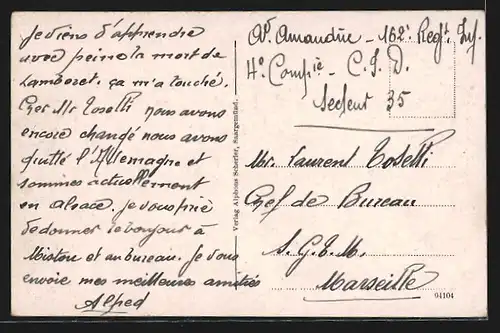 Je viens d'apprendre
avec peine la mort de
Lamberet. ça m'a touché.
Cher Mr Toselli nous avons
encore changé nous avons
quitté l'Allemagne et
sommes actuellement
en Alsace. je vous prie
de donner le bonjour à
Mistou et au bureau. Je vous
envoie mes meilleures amitiés
Alfred
Verlag Alphons Scherfer, Saargemünd.
Amandin - 162e Regt. Inf.
4e Compie - C. I. D.
Secteur 35
Mr. Laurent Toselli
Chef de Bureau
S. G. T. M.
Marseille
94104